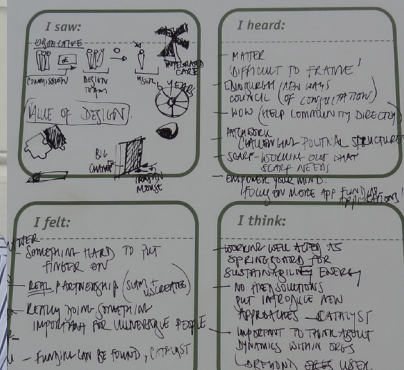 I saw:
OBJECTIVE
COMMISSION
DESIGN
TEAM
USER
INTEGRATED
CARE
VALUE OF DESIGN
YEARS
BIG
CHANGE
MOUSE
I heard:
MATTER
'DIFFICULT TO FRAME'
EDINBURGH NEW WAYS
COUNCIL (OF CONSULTATION)
HOW (HELP COMMUNITY DIRECTLY)
CHALLENGING POLITICAL STRUCTURES
WORKING OUT WHAT
SCARF NEEDS
EMPOWER YOUR MIND
FOCUS ON MORE APP FUNDING
APPLICATIONS!
I felt:
SOMETHING HARD TO PUT
FINGER ON
REAL PARTNERSHIP
REALLY DOING SOMETHING
IMPORTANT FOR VULNERABLE PEOPLE
FUNDING CAN BE FOUND, CATALYST
I think:
WORKING WELL ACTED AS
SPRINGBOARD FOR
SUSTAINABILITY ENERGY
NO FIXED SOLUTIONS
BUT INTRODUCE NEW
APPROACHES - CATALYST
IMPORTANT TO THINK ABOUT
DYNAMICS WITHIN ORGS
BEYOND USER